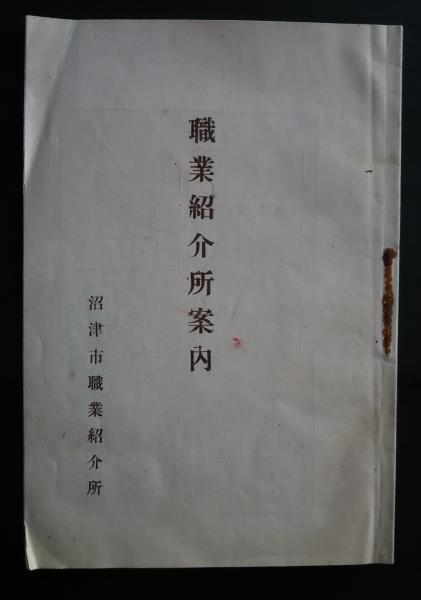 職業紹介所案内
沼津市職業紹介所